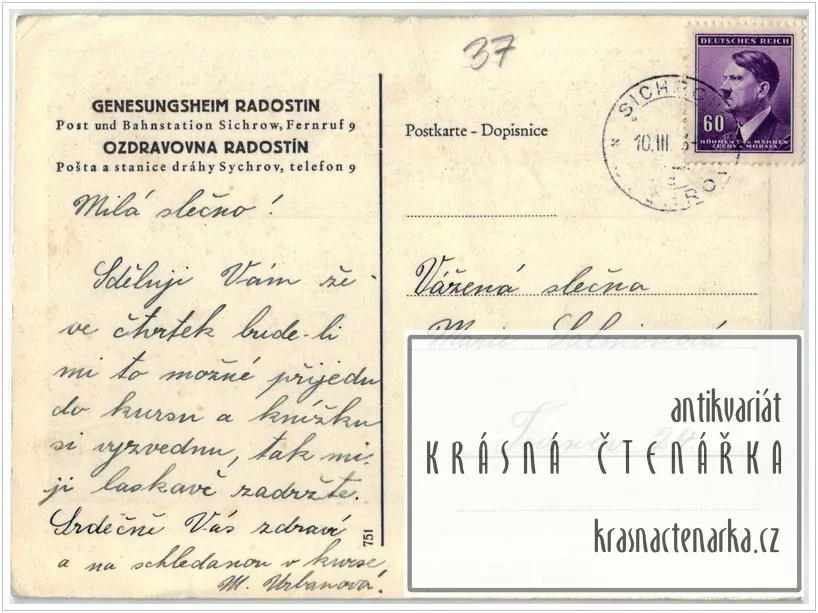 37
GENESUNGSHEIM RADOSTIN
Post und Bahnstation Sichrow, Fernruf 9
OZDRAVOVNA RADOSTÍN
Pošta a stanice dráhy Sychrov, telefon 9
Milá slečno!
Sděluji Vám že-
ve čtvrtek bude-li
mi to možné přijedu
do kursu a knížku
si vyzvednu, tak mi-
ji laskavě zadržte.
Srdečně Vás zdraví
a na schledanou v kurse
M. Urbanová!
751
Postkarte - Dopisnice
DEUTSCHES REICH
60
BÖHMEN u. MÄHREN
ČECHY a MORAVA
10.III
Vážená slečna
Marie
antikvariát
KRÁSNÁ ČTENÁŘKA
krasnactenarka.cz